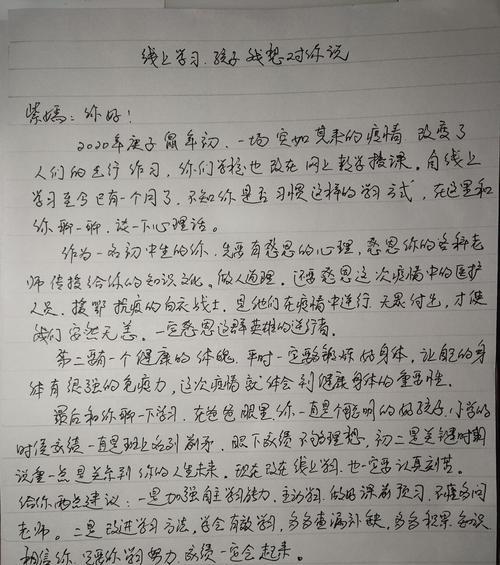 线上学习.孩子我想对你说
紫嫣：你好！
2020年庚子鼠年初，一场突如其来的疫情 改变了
人们的生行作习，你们学校也改在网上教学授课。自线上
学习至今已有一个月了，不知你是否习惯这样的学习方式，在这里和
你聊一聊，谈一下心理话。
作为一名初中生的你，先要有感恩的心理，感恩你的各科老
师传授给你的知识文化。做人道理。还要感恩这次疫情中的医护
人员，援鄂抗疫的白衣战士，是他们在疫情中逆行 无畏付出，才使
我们安然无恙。一定感恩这群英雄的逆行者。
第二要有一个健康的体魄，平时一定要锻炼好身体，让自己的身
体有很强的免疫力，这次疫情就体会到健康身体的重要性。
最后和你聊一下学习，在爸爸眼里你一直是个聪明的好孩子，小学的
时候成绩一直是班上名列前茅，眼下成绩不够理想，初二是关键时期
说重一点是关系到你的人生未来。现在改在线上学习，也一定要认真刻苦。
给你两点建议：一是加强自主学习能力，主动学习，做好课前预习，不懂多问
老师。二是改进学习方法，学会有效学习，多多查漏补缺，多多积累知识
相信你，只要你学习努力，成绩一定会起来。